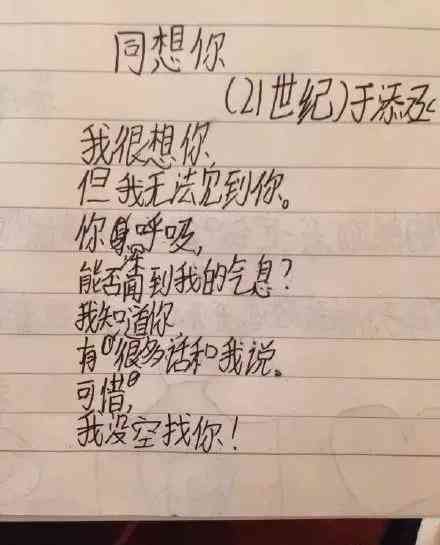 同想你
(21世纪)于添
我很想你,
但我无法见到你。
你深呼吸,
能否闻到我的气息?
我知道你,
有很多话和我说。
可惜,
我没空找你!